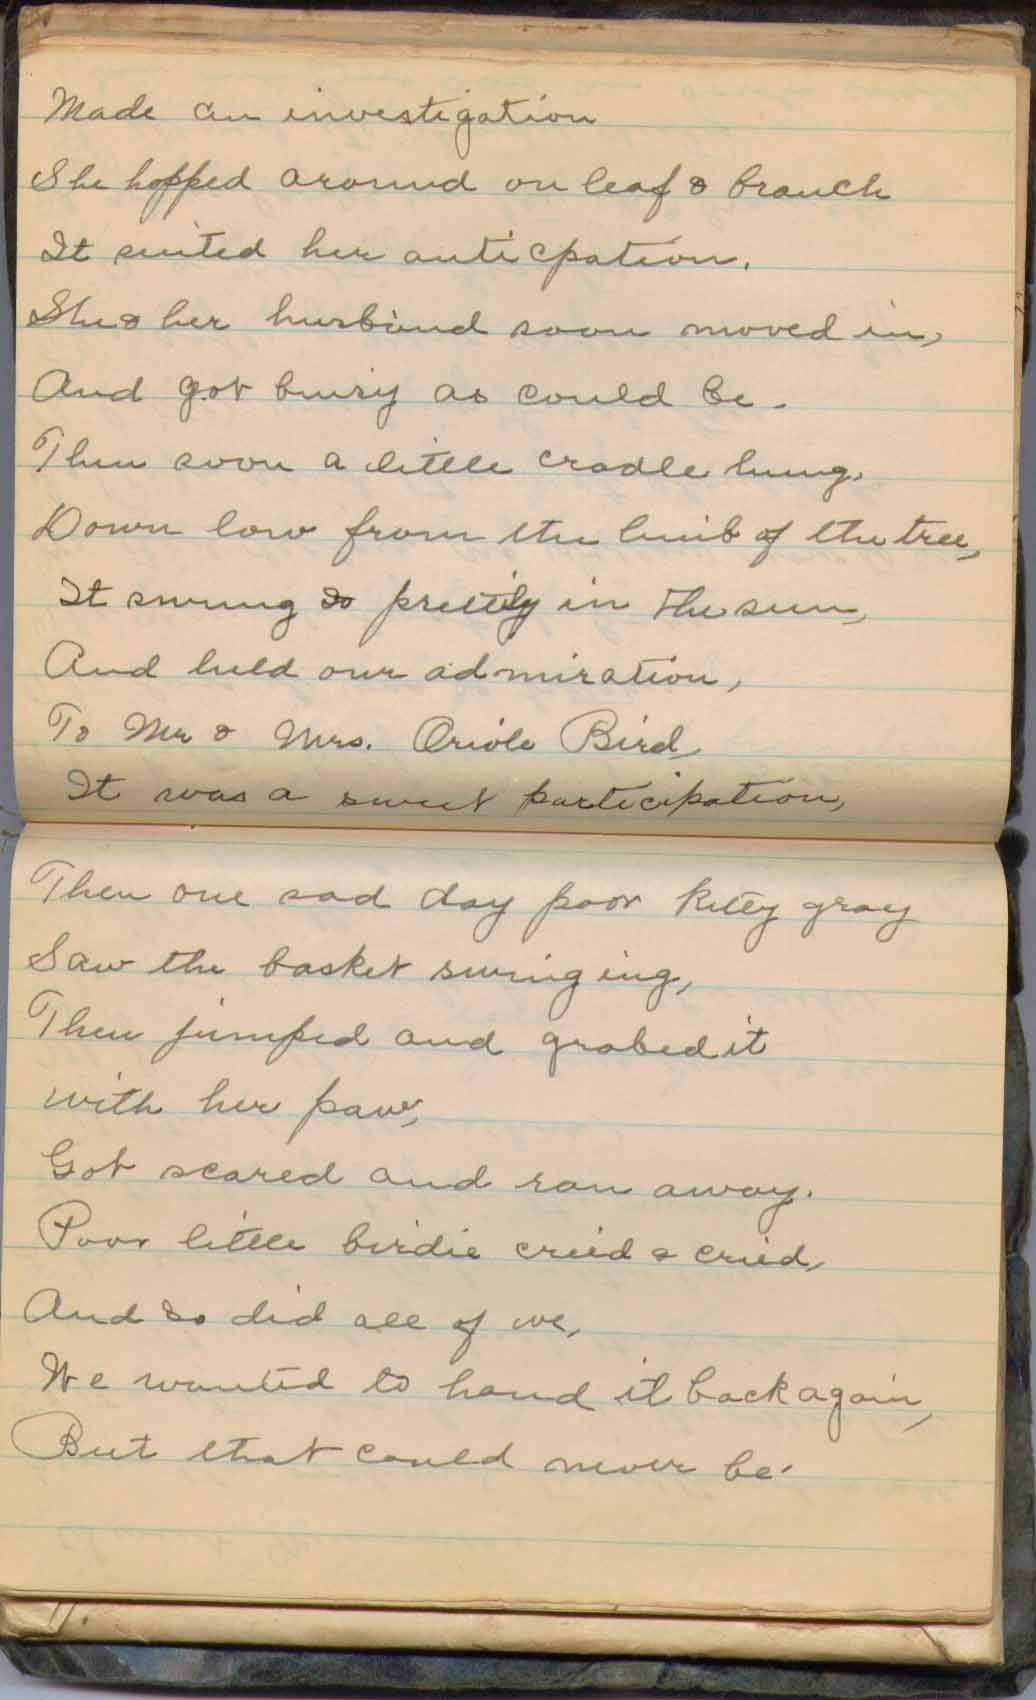 Made an investigation
She hopped around on leaf & branch
It suited her anticpation.
She & her husband soon moved in,
And got buisy as could be.
Then soon a little cradle hung,
Down low from the limb of the tree,
It swung so prettily in the sun,
And held our admiration,
To Mr & Mrs. Oriole Bird,
It was a sweet participation,
Then one sad day poor Kitty gray
Saw the basket swinging,
Then jumped and grabed it
with her paw,
Got scared and ran away.
Poor little birdie cried & cried,
And so did all of we,
We wanted to hand it back again,
But that could never be.